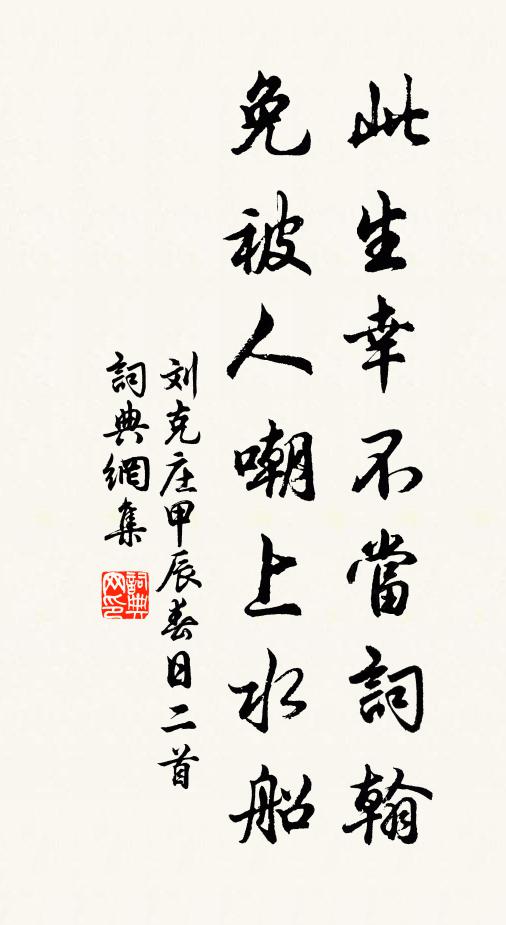 此生幸不當詞翰
免被人嘲上水船
刘克庄甲辰春日二首
詞典網集
詞典网印